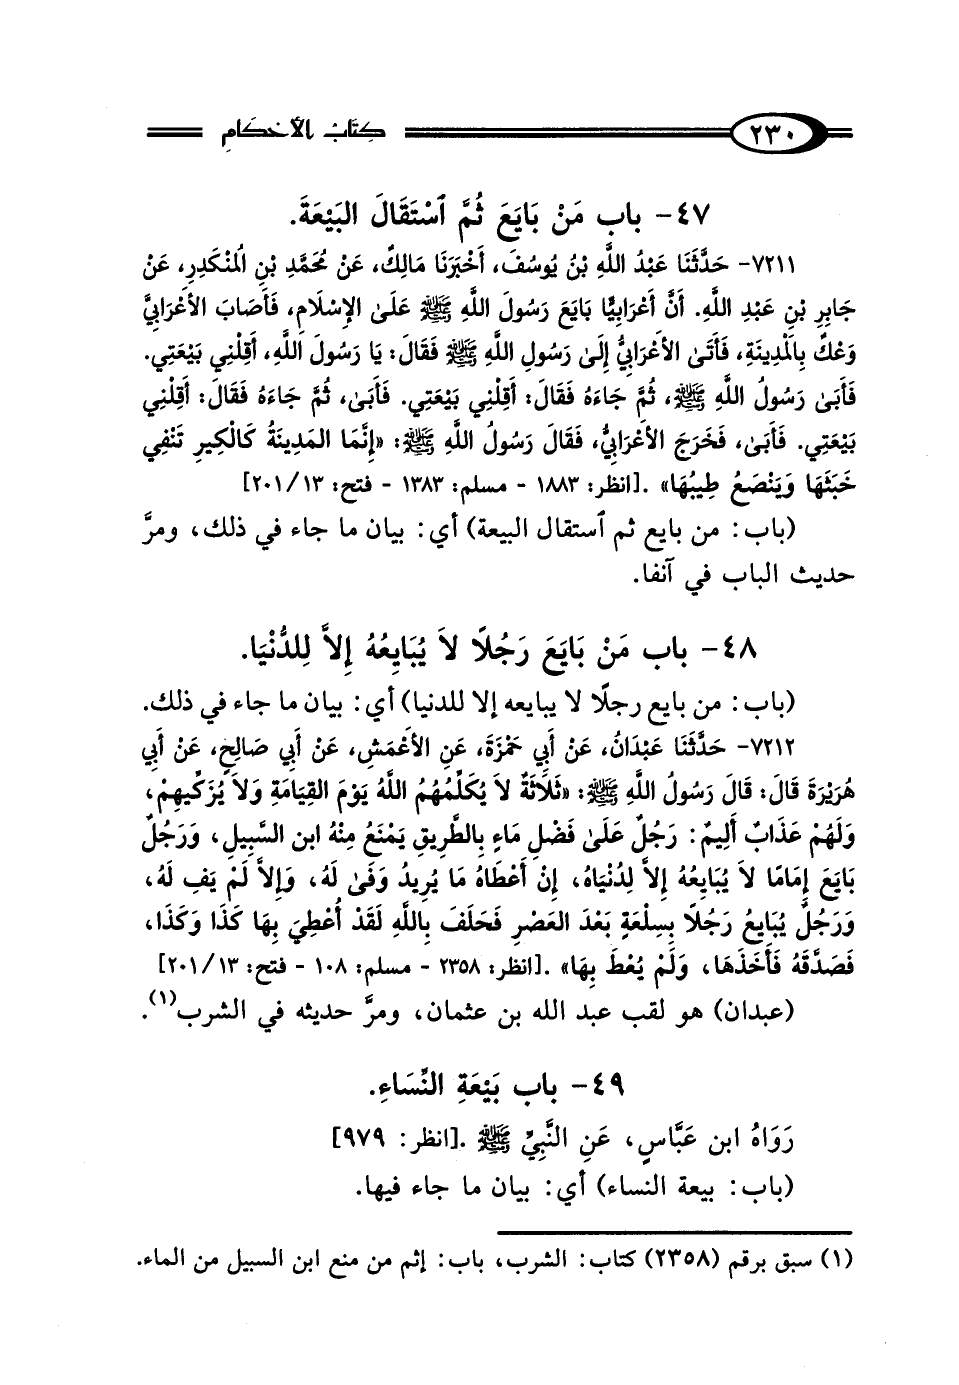 ٢٣٠ كتاب الأحكام
٤٧- باب مَنْ بَايَعَ ثُمَّ ٱسْتَقَالَ البَيْعَةَ.
٧٢١١- حَدَّثَنَا عَبْدُ اللَّهِ بْنُ يُوسُفَ، أَخْبَرَنَا مَالِكٌ، عَنْ مُحَمَّدِ بْنِ الْمُنْكَدِرِ، عَنْ
جَابِرِ بْنِ عَبْدِ اللَّهِ. أَنَّ أَعْرَابِيًّا بَايَعَ رَسُولَ اللَّهِ ﷺ عَلَىٰ الإِسْلَامِ، فَأَصَابَ الأَعْرَابِيَّ
وَعْكٌ بِالْمَدِينَةِ، فَأَتَىٰ الأَعْرَابِيُّ إِلَىٰ رَسُولِ اللَّهِ ﷺ فَقَالَ: يَا رَسُولَ اللَّهِ، أَقِلْنِي بَيْعَتِي.
فَأَبَىٰ رَسُولُ اللَّهِ ﷺ، ثُمَّ جَاءَهُ فَقَالَ: أَقِلْنِي بَيْعَتِي. فَأَبَىٰ، ثُمَّ جَاءَهُ فَقَالَ: أَقِلْنِي
بَيْعَتِي. فَأَبَىٰ، فَخَرَجَ الأَعْرَابِيُّ، فَقَالَ رَسُولُ اللَّهِ ﷺ: «إِنَّمَا المَدِينَةُ كَالْكِيرِ تَنْفِي
خَبَثَهَا وَيَنْصَعُ طِيبُهَا» .[انظر: ١٨٨٣ - مسلم: ١٣٨٣ - فتح: ١٣/ ٢٠١]
(باب: من بايع ثم ٱستقال البيعة) أي: بيان ما جاء في ذلك، ومرَّ
حديث الباب في آنفا.
٤٨- باب مَنْ بَايَعَ رَجُلًا لاَ يُبَايِعُهُ إِلاَّ لِلدُّنْيَا.
(باب: من بايع رجلًا لا يبايعه إلا للدنيا) أي: بيان ما جاء في ذلك.
٧٢١٢- حَدَّثَنَا عَبْدَانُ، عَنْ أَبِي حَمْزَةَ، عَنِ الأَعْمَشِ، عَنْ أَبِي صَالِحٍ، عَنْ أَبِي
هُرَيْرَةَ قَالَ: قَالَ رَسُولُ اللَّهِ ﷺ: «ثَلاَثَةٌ لاَ يُكَلِّمُهُمُ اللَّهُ يَوْمَ القِيَامَةِ وَلاَ يُزَكِّيهِمْ،
وَلَهُمْ عَذَابٌ أَلِيمٌ: رَجُلٌ عَلَىٰ فَضْلِ مَاءٍ بِالطَّرِيقِ يَمْنَعُ مِنْهُ ابن السَّبِيلِ، وَرَجُلٌ
بَايَعَ إِمَامًا لاَ يُبَايِعُهُ إِلاَّ لِدُنْيَاهُ، إِنْ أَعْطَاهُ مَا يُرِيدُ وَفَىٰ لَهُ، وَإِلاَّ لَمْ يَفِ لَهُ،
وَرَجُلٌ يُبَايِعُ رَجُلًا بِسِلْعَةٍ بَعْدَ العَصْرِ فَحَلَفَ بِاللَّهِ لَقَدْ أُعْطِيَ بِهَا كَذَا وَكَذَا،
فَصَدَّقَهُ فَأَخَذَهَا، وَلَمْ يُعْطَ بِهَا» .[انظر: ٢٣٥٨ - مسلم: ١٠٨ - فتح: ١٣/ ٢٠١]
(عبدان) هو لقب عبد الله بن عثمان، ومرَّ حديثه في الشرب(١).
٤٩- باب بَيْعَةِ النِّسَاءِ.
رَوَاهُ ابن عَبَّاسٍ، عَنِ النَّبِيِّ ﷺ .[انظر: ٩٧٩]
(باب: بيعة النساء) أي: بيان ما جاء فيها.
(١) سبق برقم (٢٣٥٨) كتاب: الشرب، باب: إثم من منع ابن السبيل من الماء.